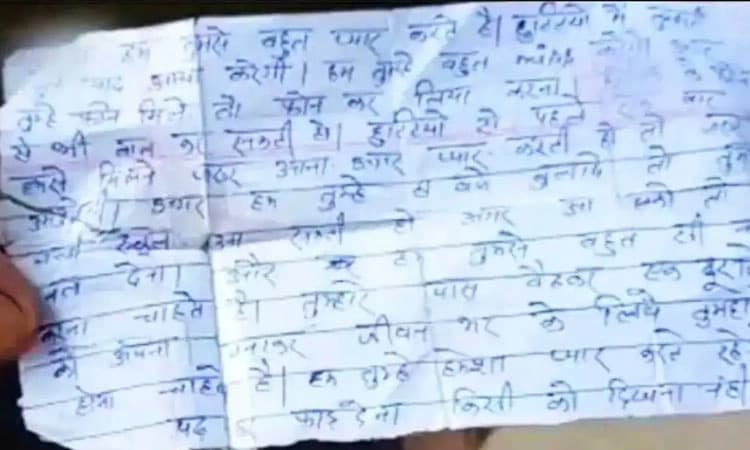 हम तुमसे बहुत प्यार करते है। छुट्टियो में तुम्हारी
याद आया करेगी। हम तुम्हे बहुत करेगे अगर
तुम्हे फोन मिले तो फोन कर लिया करना।
से भी बात कर सकती हो। छुट्टियो से पहले एक बार
हमसे मिलने जरूर आना अगर प्यार करती हो तो जरूर
आओगी। अगर हम तुम्हे 8 बजे बुलाये तो तुम
स्कूल आ सकती हो अगर आ सको तो
बता देना। और हम तुमसे बहुत सारी
करना चाहते है। तुम्हारे पास बैठकर एक दूसरे
को अपना बनाकर जीवन भर के लिये तुम्हारे
होना चाहते है। हम तुम्हे हमेशा प्यार करते रहेगे
पढ कर फाड देना किसी को दिखाना नही।